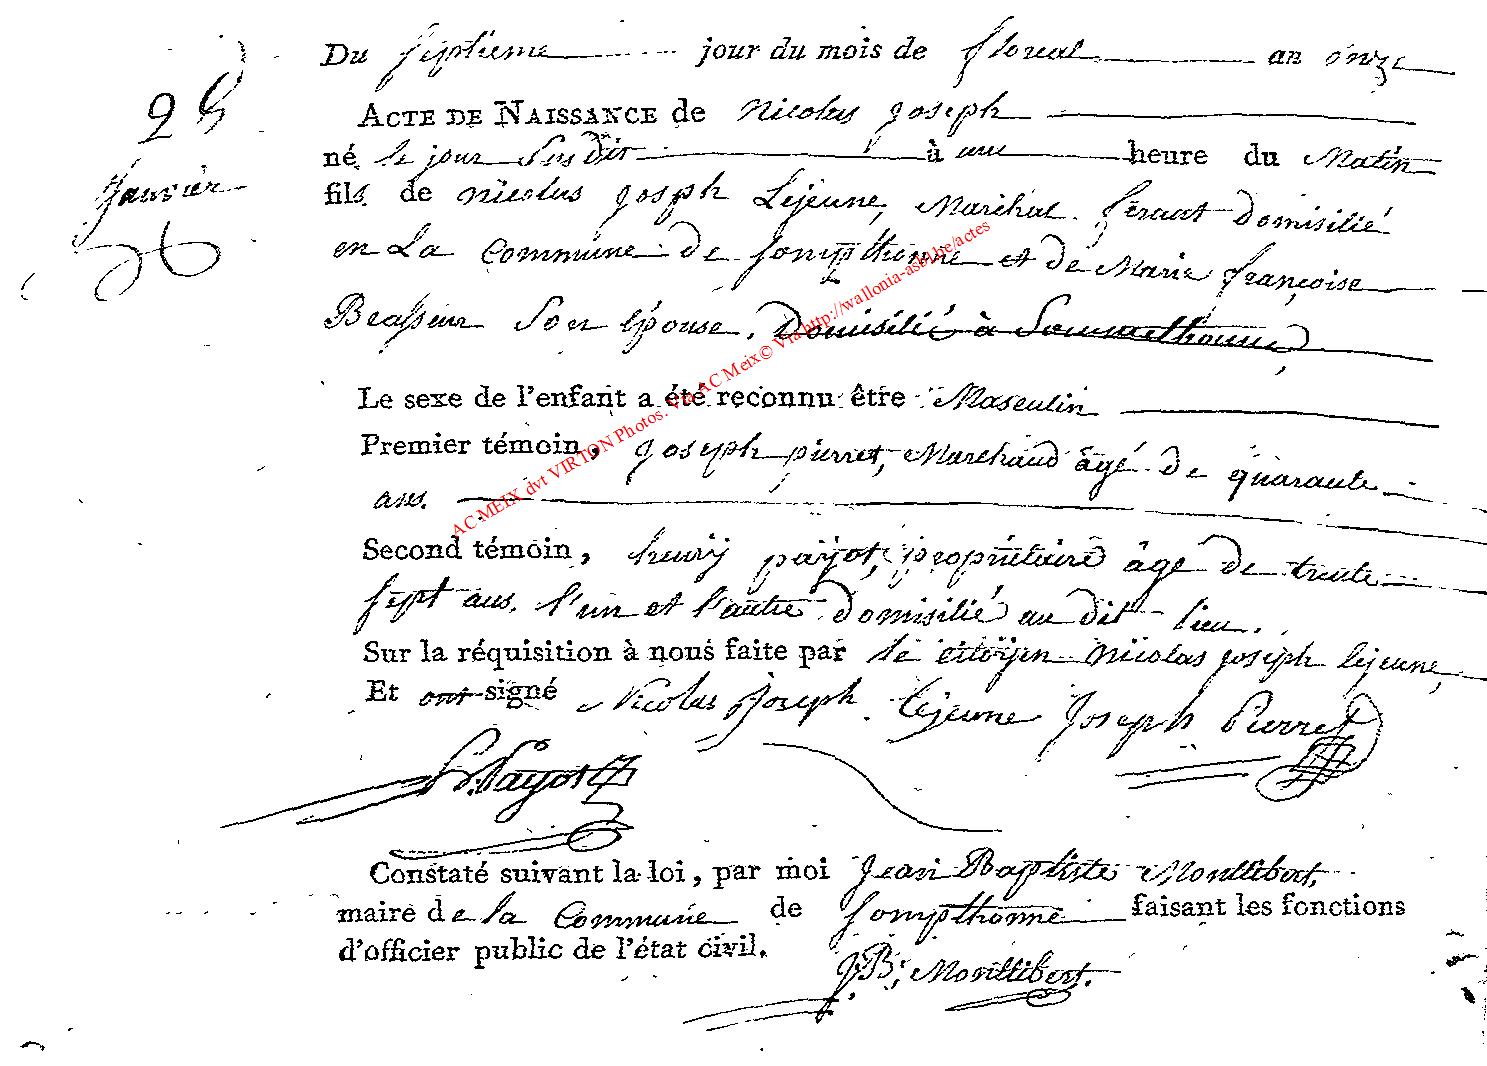 Du septieme jour du mois de floreal an onze
28
Janvier
ACTE DE NAISSANCE de Nicolas Joseph
né le jour Susdit à une heure du Matin
fils de Nicolas Joseph Lejeune, Maréhal férant domisilié
en La Commune de sompthonne et de Marie françoise
Brasseur Son épouse. Domisilié à Sommethonne
Le sexe de l'enfant a été reconnu être Masculin
Premier témoin, Joseph pierret, Marchand âgé de quarante
ans.
Second témoin, henry payot, propriétaire âgé de trente
sept ans. l'un et l'autre domisilié au dit lieu.
Sur la réquisition à nous faite par le citoyen Nicolas joseph lejeune,
Et ont signé Nicolas Joseph Lejeune Joseph Pierret
H. Payot
Constaté suivant la loi, par moi Jean Baptiste Montlibert,
maire de la Commune de sompthonne faisant les fonctions
d'officier public de l'état civil.
J.B. Montlibert.
AC MEIX dvt VIRTON Photos. Via AC Meix© Via http://wallonia-asbl.be/actes